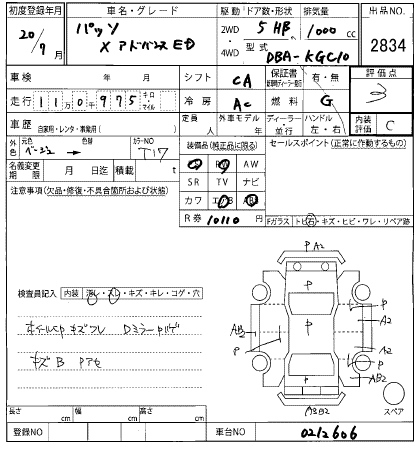 初度登録年月 車名・グレード 駆動 ドア数・形状 排気量 出品NO.
20/9月 パッソ X アドバンスED 2WD 4WD 5 HB 1000 cc 2834
型式 DBA-KGC10
車検 年 月 シフト CA 保証書 有・無 評価点 3
走行 110千975 キロ・マイル 冷房 AC 燃料 G
車歴 自家用・レンタ・事業用( ) 定員 外車モデル年 ディーラー・並行 ハンドル 左・右 内装評価 C
外色 元色 ベージュ → 色替 カラーNO T17 装備品(純正品に限る) セールスポイント(正常に作動するもの)
名義変更期限 月 日迄 積載 t PS PW AW
SR TV ナビ
注意事項(欠品・修復・不具合箇所および状態) カワ エアB ABS
R券 10110 Fガラス トビ石・キズ・ヒビ・ワレ・リペア跡
P A2
検査員記入 内装 汚レ・スレ・キズ・キレ・コゲ・穴
P
P
A2
P
P
A2
P
AB2
ホイルCPキズフレ Dミラーハゲ
キズB Pアセ
AB2
スペア
長さ cm 幅 cm 高さ cm
登録NO 車台NO 0212606